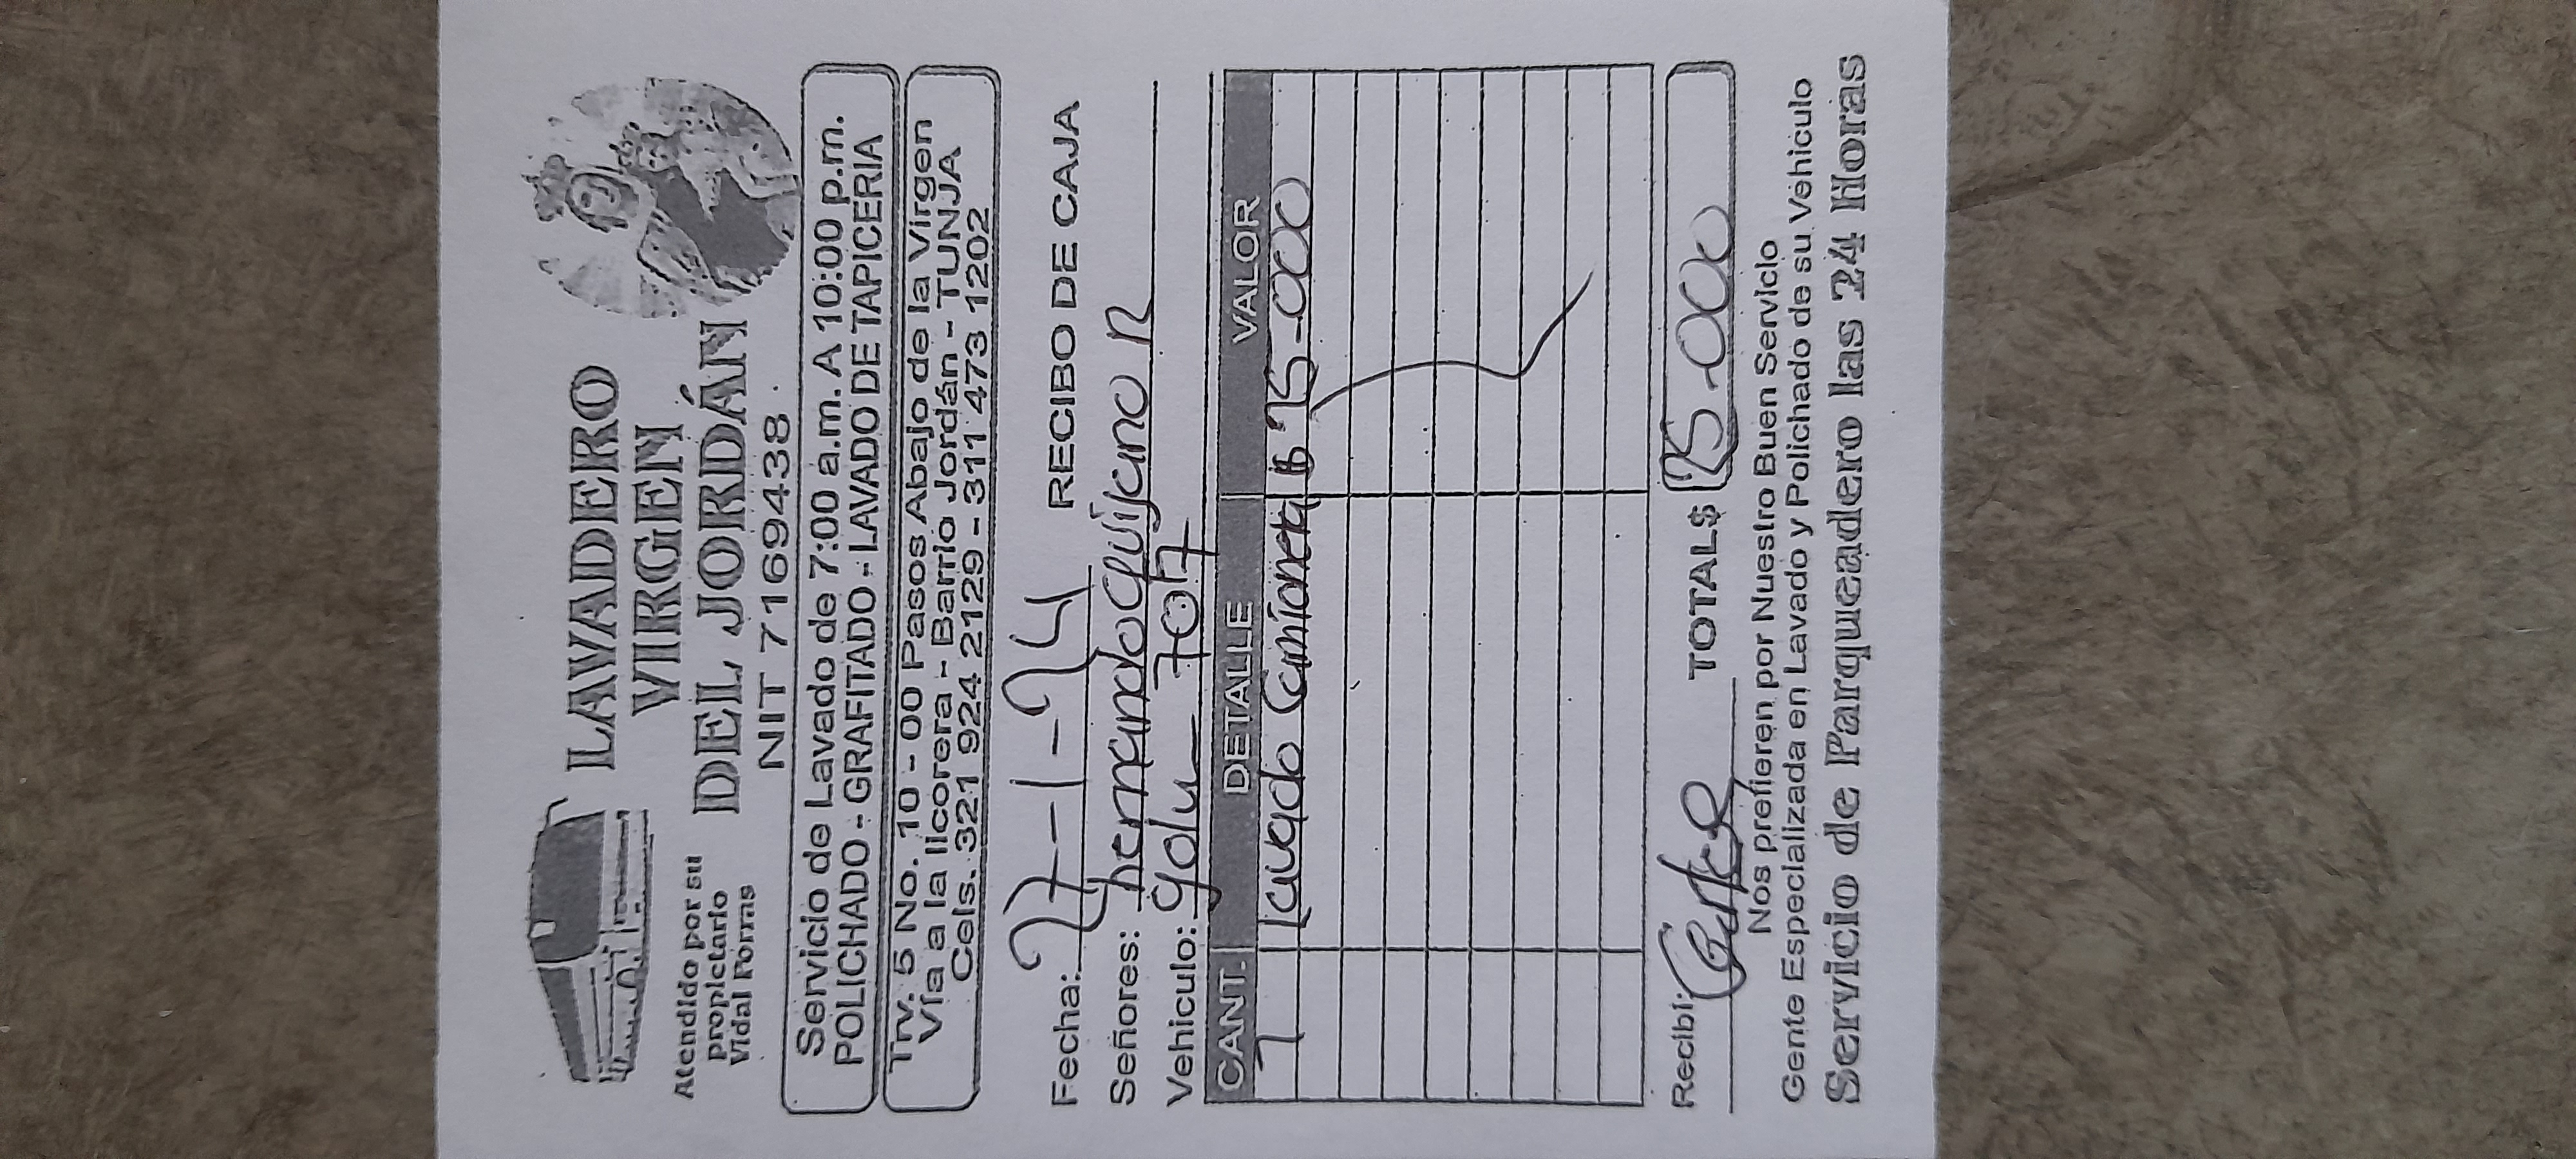 LAVADERO
VIRGEN
DEL JORDÁN
NIT 7169438
Atendido por su
propietario
Vidal Porras
Servicio de Lavado de 7:00 a.m. A 10:00 p.m.
POLICHADO - GRAFITADO - LAVADO DE TAPICERIA
Trv. 5 No. 10 - 00 Pasos Abajo de la Virgen
Vía a la licorera - Barrio Jordán - TUNJA
Cels. 321 924 2129 - 311 473 1202
Fecha: 27-1-24 RECIBO DE CAJA
Señores: hernando quijano R
Vehiculo: golu - 707
CANT. DETALLE VALOR
1 lavado Camioneta $ 75-000
Recibi: TOTAL$ 75-000
Nos prefieren por Nuestro Buen Servicio
Gente Especializada en Lavado y Polichado de su Vehiculo
Servicio de Parqueadero las 24 Horas